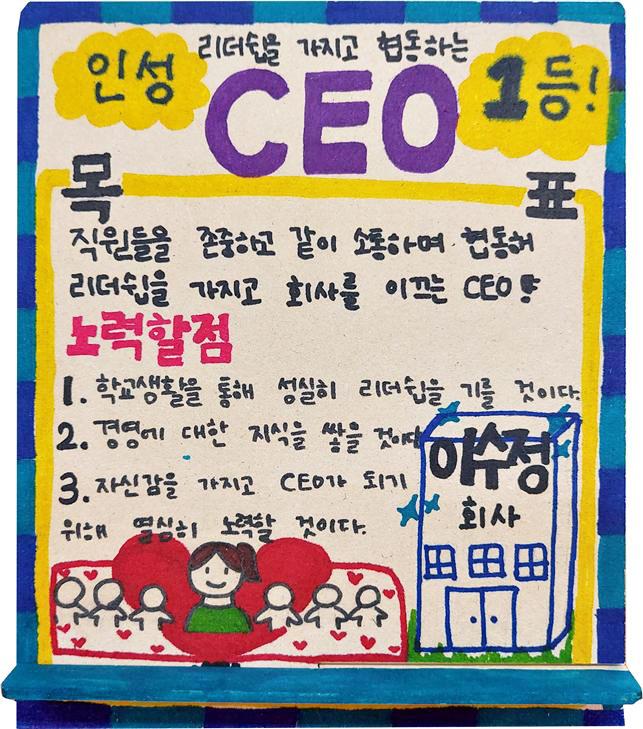 리더쉽을 가지고 협동하는
인성 CEO 1등!
목표
직원들을 존중하고 같이 소통하며 협동해
리더쉽을 가지고 회사를 이끄는 CEO!
노력할점
1. 학교생활을 통해 성실히 리더쉽을 기를 것이다.
2. 경영에 대한 지식을 쌓을 것이다
3. 자신감을 가지고 CEO가 되기
위해 열심히 노력할 것이다.
이수정
회사